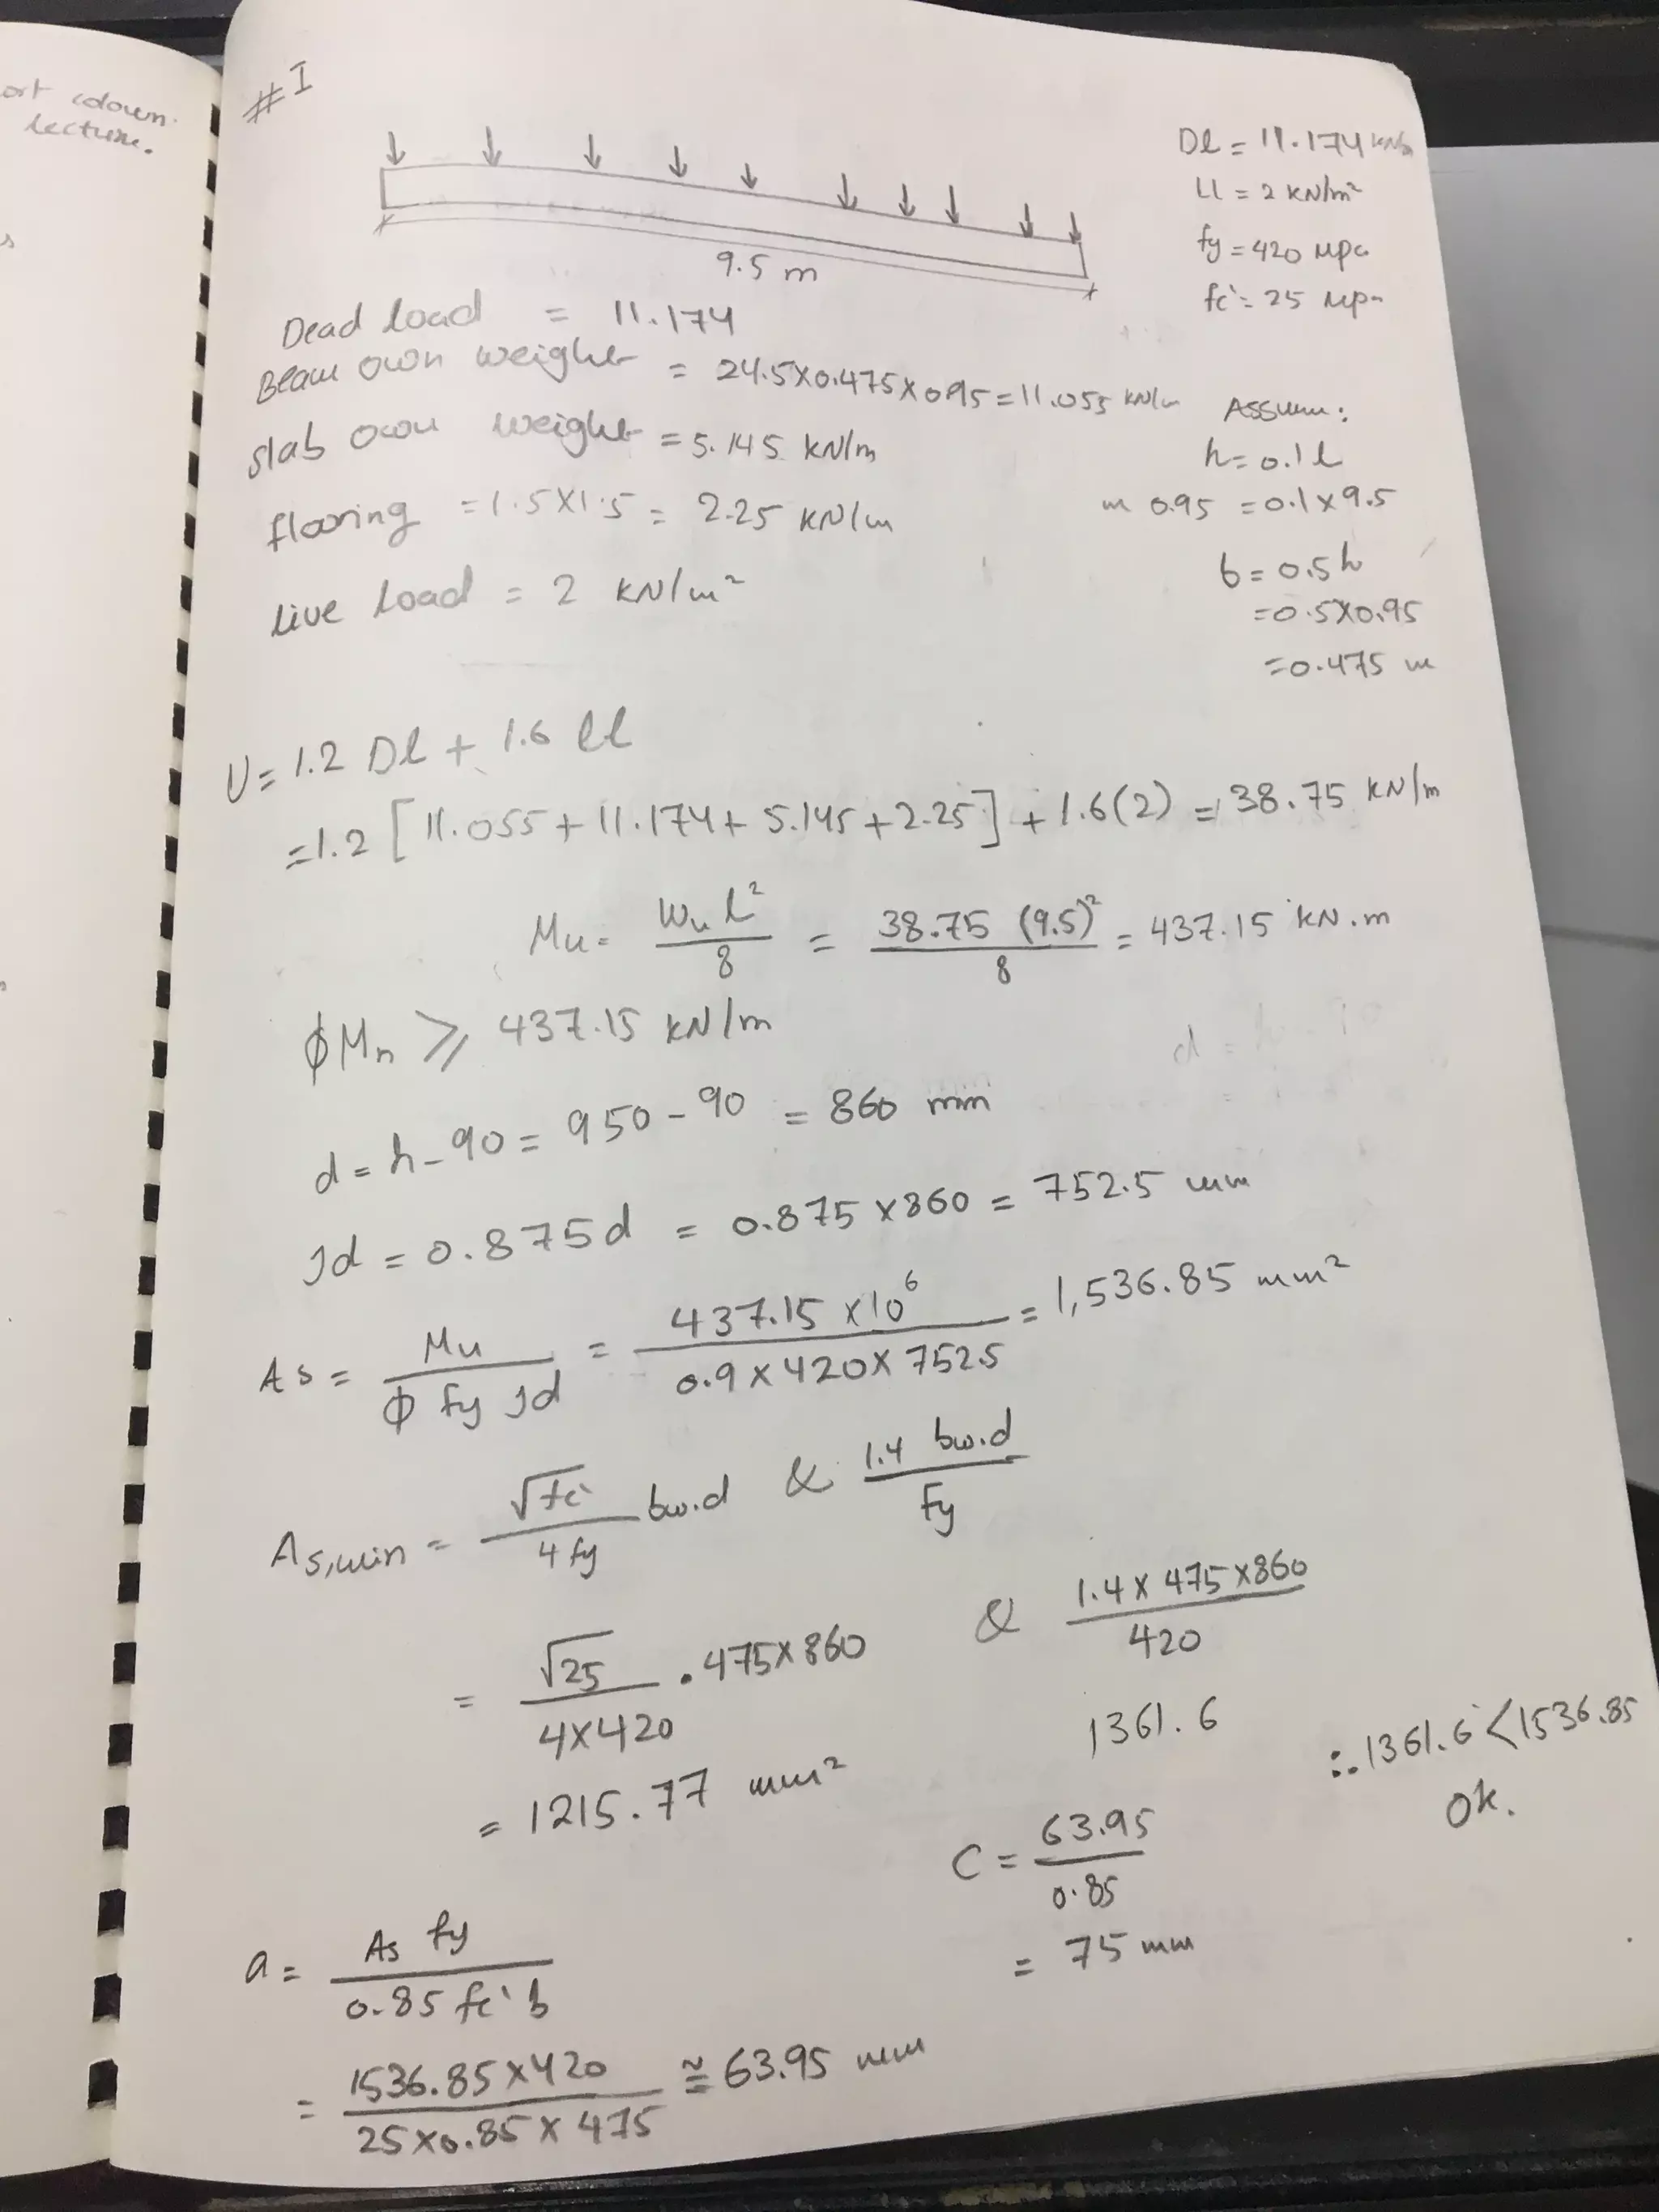 ort column.
lecture.
#I
9.5 m
Dl = 11.174
Ll = 2 KN/m²
fy = 420 Mpa
fc' = 25 Mpa
Dead load = 11.174
Beam own weight = 24.5×0.475×0.95=11.055 kN/m
slab own weight = 5.145 KN/m
flooring = 1.5×1.5 = 2.25 KN/m
live load = 2 KN/m²
Assume:
h= 0.1 l
m 0.95 = 0.1×9.5
b= 0.5h
=0.5×0.95
=0.475 m
U= 1.2 Dl + 1.6 ll
=1.2 [11.055 + 11.174 + 5.145 + 2.25] + 1.6(2) = 38.75 KN/m
Mu = Wu l²/8 = 38.75 (9.5)²/8 = 437.15 kN.m
ϕMn ≥ 437.15 KN/m
d = h - 90 = 950 - 90 = 860 mm
Jd = 0.875d = 0.875×860 = 752.5 mm
As = Mu/ϕ fy Jd = 437.15×10⁶/0.9×420×752.5 = 1,536.85 mm²
As,min = √fc'/4fy bw.d & 1.4 bw.d/Fy
= √25/4×420 . 475×860 & 1.4×475×860/420
= 1215.77 mm²
1361.6
∴ 1361.6 < 1536.85
Ok.
a = As fy/0.85 fc' b
= 1536.85×420/25×0.85×475 ≅ 63.95 mm
C = 63.95/0.85
= 75 mm